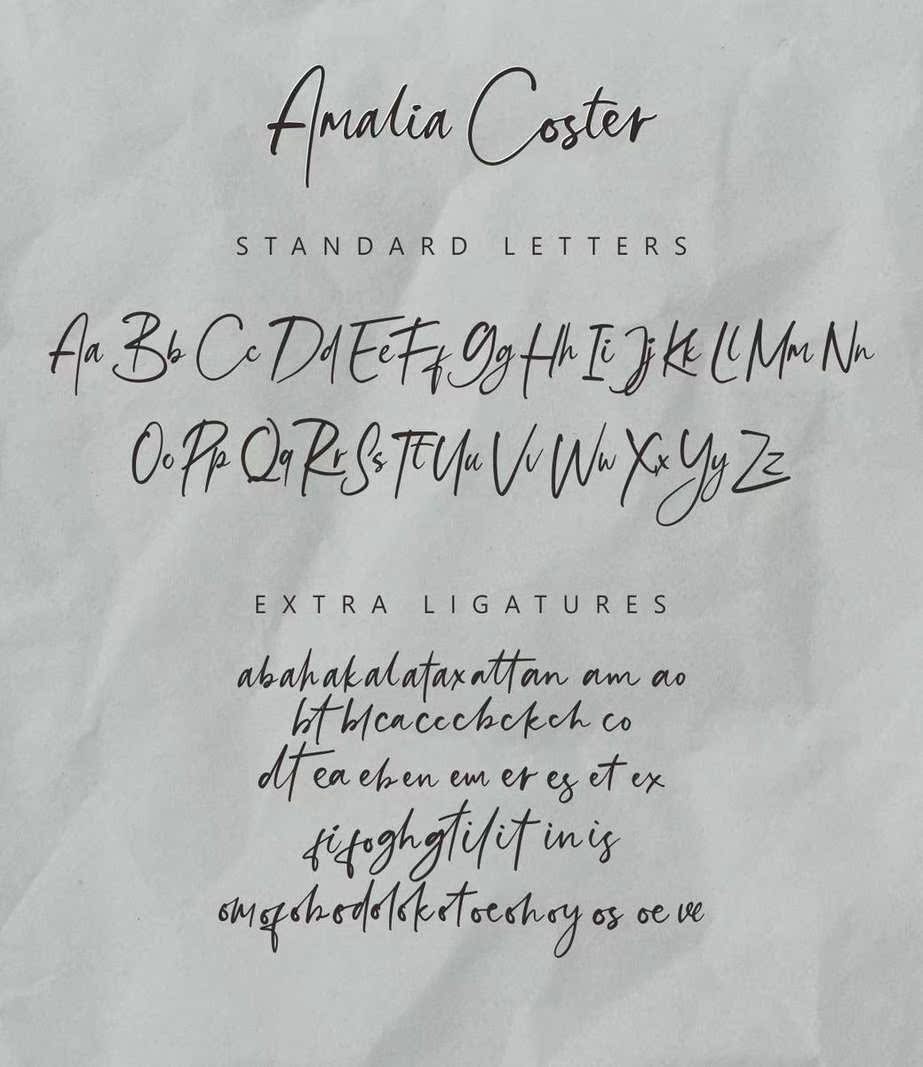 Amalia Coster
STANDARD LETTERS
Aa Bb Cc Dd Ee Ff Gg Hh Ii Jj Kk Ll Mm Nn
Oo Pp Qq Rr Ss Tt Uu Vv Ww Xx Yy Zz
EXTRA LIGATURES
abahakalataxattan am ao
bt blcacccbckch co
dt ea eb en em er es et ex
fifoghgtilit in is
omofobodolokotoeohoy os oe ve